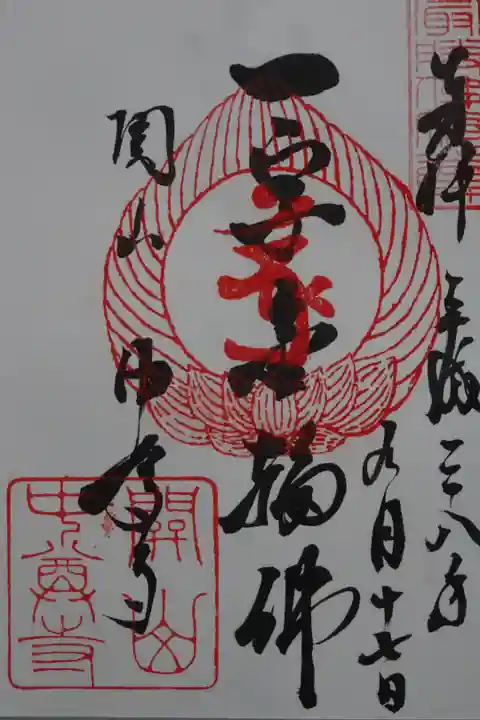 奉拝
平成二十八年
九月十七日
一字金輪佛
関山
中尊寺
關山
中尊寺